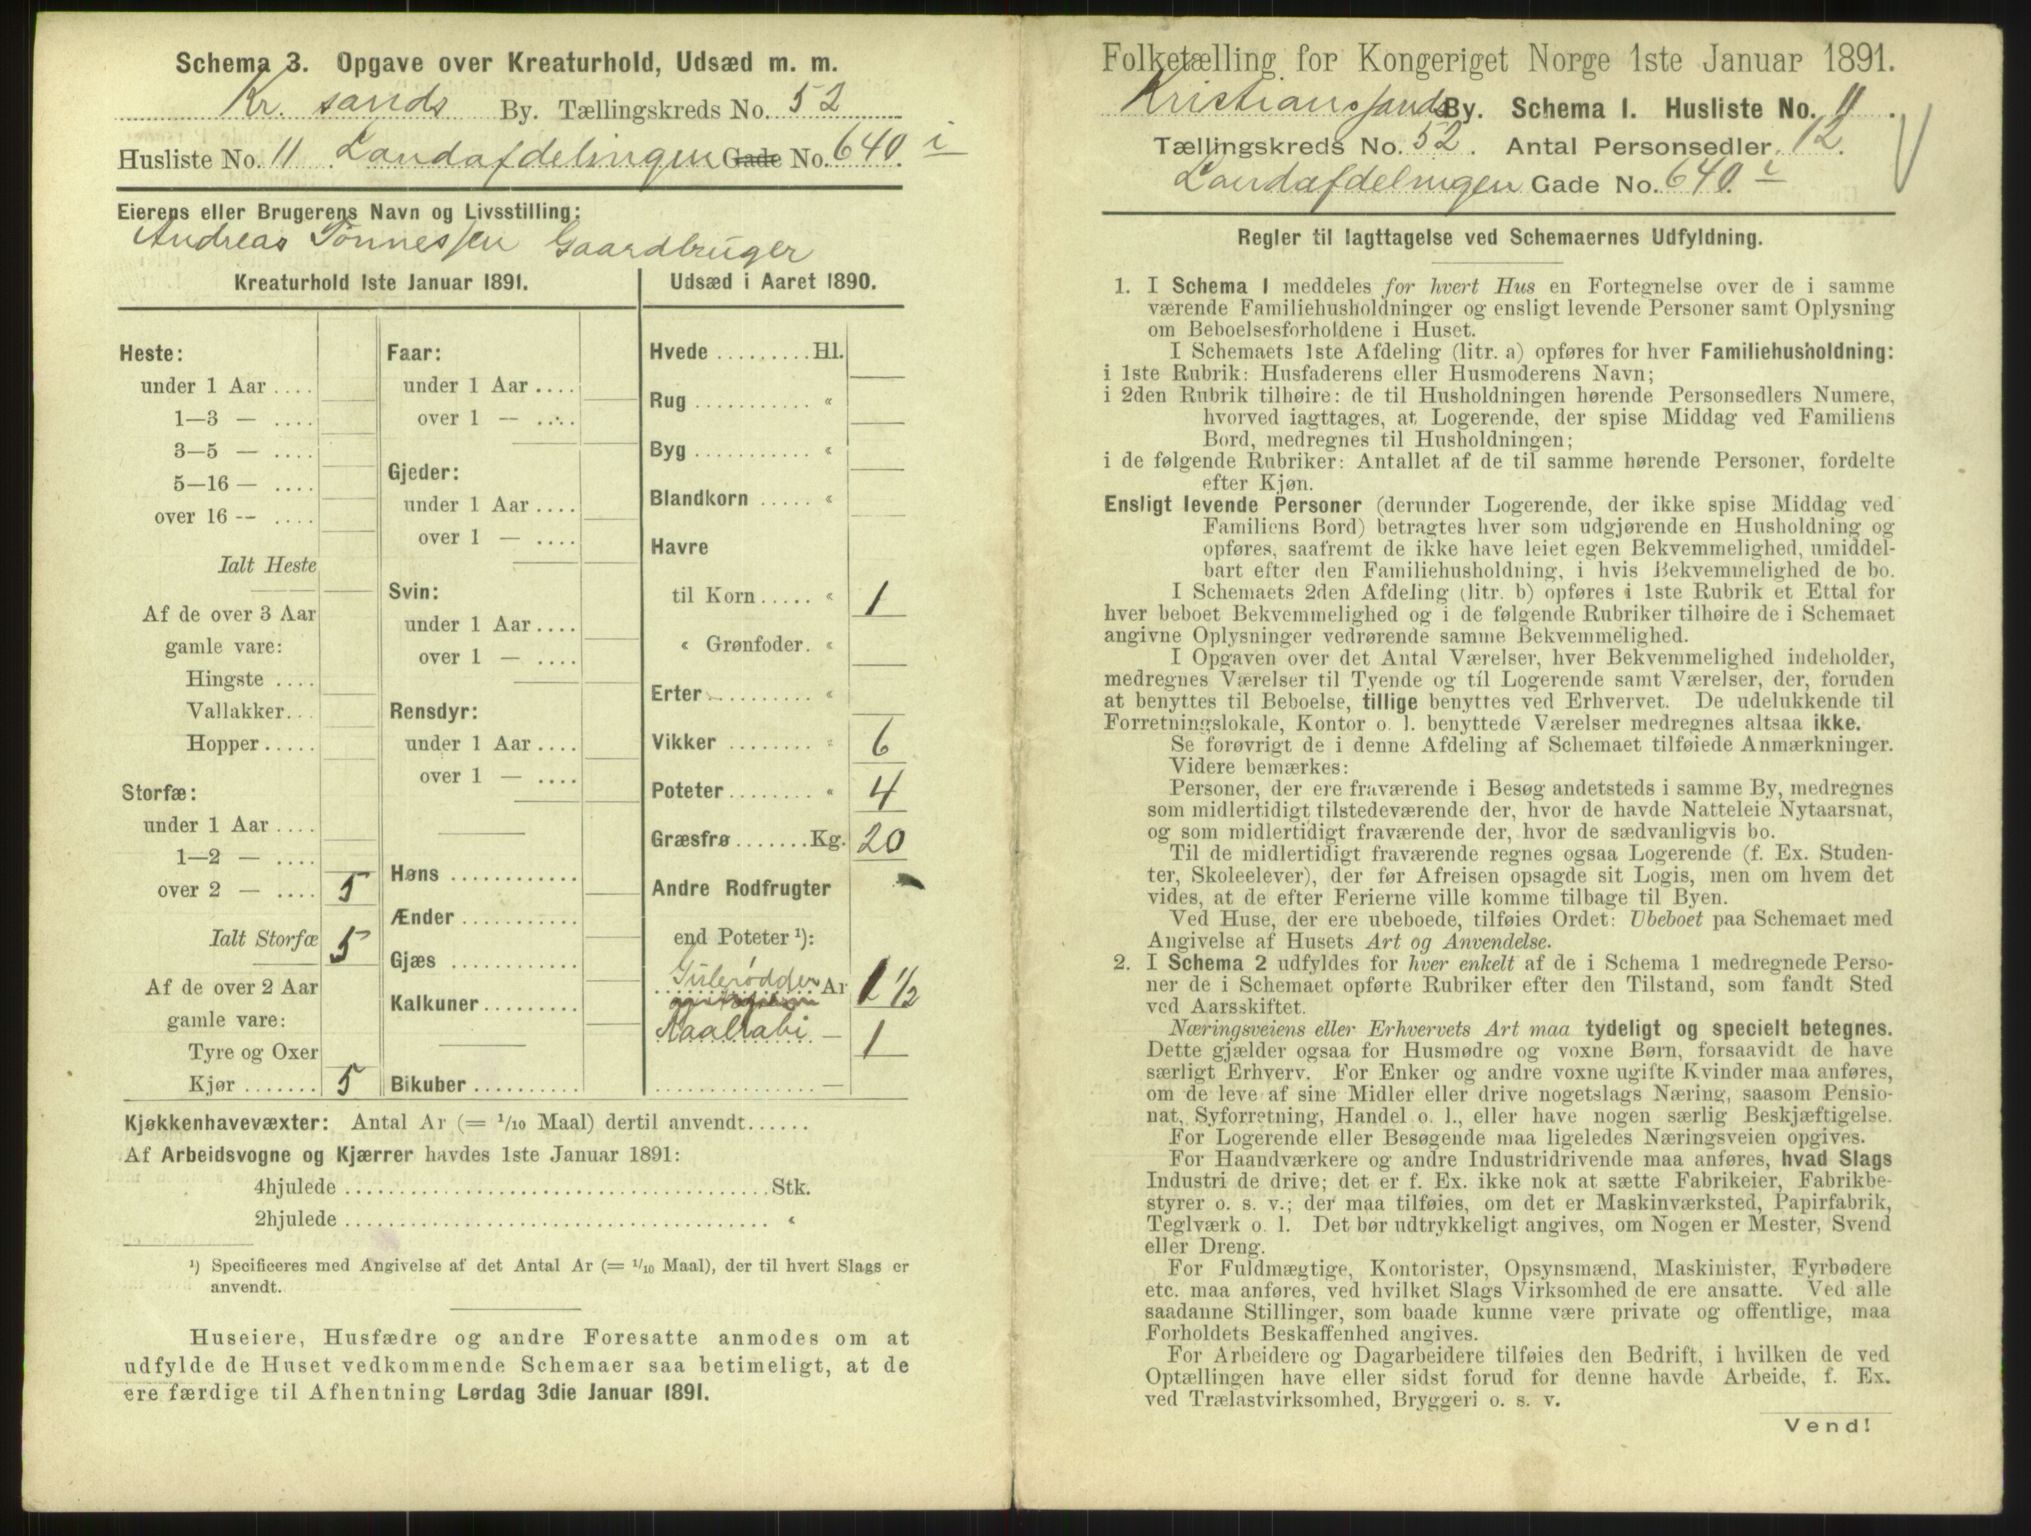 Schema 3. Opgave over Kreaturhold, Udsæd m. m.
Kr. sands By. Tællingskreds No. 52
Husliste No. 11 Landafdelingen Gade No. 640. i
Eierens eller Brugerens Navn og Livsstilling:
Andreas Tønnessen Gaardbruger
Kreaturhold 1ste Januar 1891.
Heste:
under 1 Aar ....
1—3 — ....
3—5 — ....
5—16 — ....
over 16 — ....
Ialt Heste
Af de over 3 Aar
gamle vare:
Hingste ....
Vallakker...
Hopper.....
Storfæ:
under 1 Aar ....
1—2 — ....
over 2 — .... 5
Ialt Storfæ 5
Af de over 2 Aar
gamle vare:
Tyre og Oxer
Kjør ....... 5
Faar:
under 1 Aar ....
over 1 — ....
Gjeder:
under 1 Aar ....
over 1 — ....
Svin:
under 1 Aar ....
over 1 — ....
Rensdyr:
under 1 Aar ....
over 1 — ....
Høns ............
Ænder ...........
Gjæs ............
Kalkuner .........
Bikuber ..........
Udsæd i Aaret 1890.
Hvede ......... Hl.
Rug ........... «
Byg ........... «
Blandkorn ..... «
Havre
til Korn ..... « 1
« Grønfoder. «
Erter ......... «
Vikker ........ « 6
Poteter ........ « 4
Græsfrø ....... Kg. 20
Andre Rodfrugter
end Poteter ¹):
Gulerødder Ar 1 1/2
Kaalrabi — 1
—
Kjøkkenhavevæxter: Antal Ar (= 1/10 Maal) dertil anvendt......
Af Arbeidsvogne og Kjærrer havdes 1ste Januar 1891:
4hjulede ........................................ Stk.
2hjulede ........................................ «
¹) Specificeres med Angivelse af det Antal Ar (= 1/10 Maal), der til hvert Slags er
anvendt.
Huseiere, Husfædre og andre Foresatte anmodes om at
udfylde de Huset vedkommende Schemaer saa betimeligt, at de
ere færdige til Afhentning Lørdag 3die Januar 1891.
Folketælling for Kongeriget Norge 1ste Januar 1891.
Kristianssands By. Schema I. Husliste No. 11.
Tællingskreds No. 52. Antal Personsedler 12.
Landafdelingen Gade No. 640. i
Regler til Iagttagelse ved Schemaernes Udfyldning.
1. I Schema 1 meddeles for hvert Hus en Fortegnelse over de i samme
værende Familiehusholdninger og ensligt levende Personer samt Oplysning
om Beboelsesforholdene i Huset.
I Schemaets 1ste Afdeling (litr. a) opføres for hver Familiehusholdning:
i 1ste Rubrik: Husfaderens eller Husmoderens Navn;
i 2den Rubrik tilhøire: de til Husholdningen hørende Personsedlers Numere,
hvorved iagttages, at Logerende, der spise Middag ved Familiens
Bord, medregnes til Husholdningen;
i de følgende Rubriker: Antallet af de til samme hørende Personer, fordelte
efter Kjøn.
Ensligt levende Personer (derunder Logerende, der ikke spise Middag ved
Familiens Bord) betragtes hver som udgjørende en Husholdning og
opføres, saafremt de ikke have leiet egen Bekvemmelighed, umiddel-
bart efter den Familiehusholdning, i hvis Bekvemmelighed de bo.
I Schemaets 2den Afdeling (litr. b) opføres i 1ste Rubrik et Ettal for
hver beboet Bekvemmelighed og i de følgende Rubriker tilhøire de i Schemaet
angivne Oplysninger vedrørende samme Bekvemmelighed.
I Opgaven over det Antal Værelser, hver Bekvemmelighed indeholder,
medregnes Værelser til Tyende og til Logerende samt Værelser, der, foruden
at benyttes til Beboelse, tillige benyttes ved Erhvervet. De udelukkende til
Forretningslokale, Kontor o. l. benyttede Værelser medregnes altsaa ikke.
Se forøvrigt de i denne Afdeling af Schemaet tilføiede Anmærkninger.
Videre bemærkes:
Personer, der ere fraværende i Besøg andetsteds i samme By, medregnes
som midlertidigt tilstedeværende der, hvor de havde Natteleie Nytaarsnat,
og som midlertidigt fraværende der, hvor de sædvanligvis bo.
Til de midlertidigt fraværende regnes ogsaa Logerende (f. Ex. Studen-
ter, Skoleelever), der før Afreisen opsagde sit Logis, men om hvem det
vides, at de efter Ferierne ville komme tilbage til Byen.
Ved Huse, der ere ubeboede, tilføies Ordet: Ubeboet paa Schemaet med
Angivelse af Husets Art og Anvendelse.
2. I Schema 2 udfyldes for hver enkelt af de i Schema 1 medregnede Perso-
ner de i Schemaet opførte Rubriker efter den Tilstand, som fandt Sted
ved Aarsskiftet.
Næringsveiens eller Erhvervets Art maa tydeligt og specielt betegnes.
Dette gjælder ogsaa for Husmødre og voxne Børn, forsaavidt de have
særligt Erhverv. For Enker og andre voxne ugifte Kvinder maa anføres,
om de leve af sine Midler eller drive nogetslags Næring, saasom Pensio-
nat, Syforretning, Handel o. l., eller have nogen særlig Beskjæftigelse.
For Logerende eller Besøgende maa ligeledes Næringsveien opgives.
For Haandværkere og andre Industridrivende maa anføres, hvad Slags
Industri de drive; det er f. Ex. ikke nok at sætte Fabrikeier, Fabrikbe-
styrer o. s. v.; der maa tilføies, om det er Maskinværksted, Papirfabrik,
Teglværk o. l. Det bør udtrykkeligt angives, om Nogen er Mester, Svend
eller Dreng.
For Fuldmægtige, Kontorister, Opsynsmænd, Maskinister, Fyrbødere
etc. maa anføres, ved hvilket Slags Virksomhed de ere ansatte. Ved alle
saadanne Stillinger, som baade kunne være private og offentlige, maa
Forholdets Beskaffenhed angives.
For Arbeidere og Dagarbeidere tilføies den Bedrift, i hvilken de ved
Optællingen have eller sidst forud for denne havde Arbeide, f. Ex.
ved Trælastvirksomhed, Bryggeri o. s. v.
Vend!